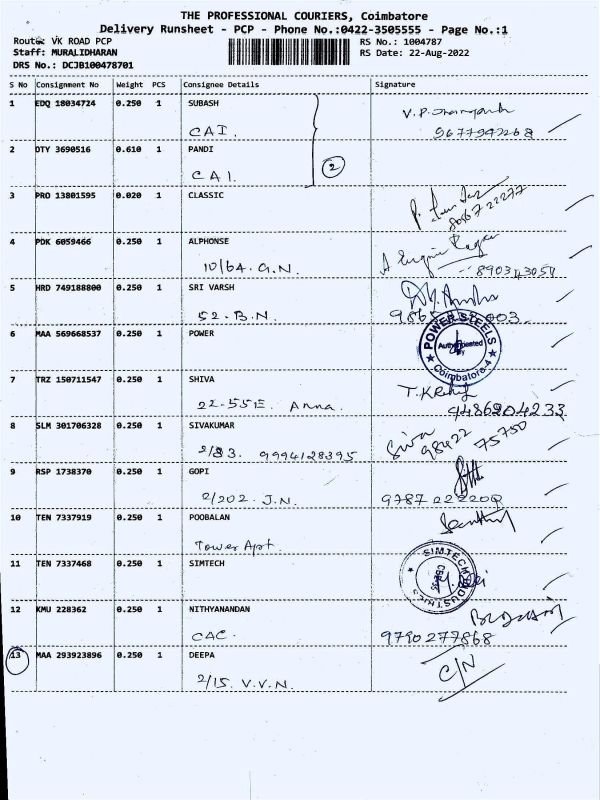 THE PROFESSIONAL COURIERS, Coimbatore
Delivery Runsheet - PCP - Phone No.:0422-3505555 - Page No.:1
Route: VK ROAD PCP
RS No.: 1004787
Staff: MURALIDHARAN
RS Date: 22-Aug-2022
DRS No.: DCJB100478701
S No Consignment No Weight PCS Consignee Details Signature
1 EDQ 18034724 0.250 1 SUBASH
CAI. 9677947268
2 DTY 3690516 0.610 1 PANDI
2
CAI.
3 PRO 13801595 0.020 1 CLASSIC
4 PDK 6059466 0.250 1 ALPHONSE
10/64. G.N.
5 HRD 749188800 0.250 1 SRI VARSH
52. B.N.
6 MAA 569668537 0.250 1 POWER
POWER STEELS
Authenticated
By
Coimbatore-4
7 TRZ 150711547 0.250 1 SHIVA
22-55E. Anna. 9486204233
8 SLM 301706328 0.250 1 SIVAKUMAR
Siva 98422 75750
2/33. 9994128395
9 RSP 1738370 0.250 1 GOPI
2/202. J.N.
10 TEN 7337919 0.250 1 POOBALAN
Tower Apt.
11 TEN 7337468 0.250 1 SIMTECH
SIMTECH INDUSTRIES
12 KMU 228362 0.250 1 NITHYANANDAN
CAC. 9790277868
13 MAA 293923896 0.250 1 DEEPA
C/N
2/15. V.V.N.